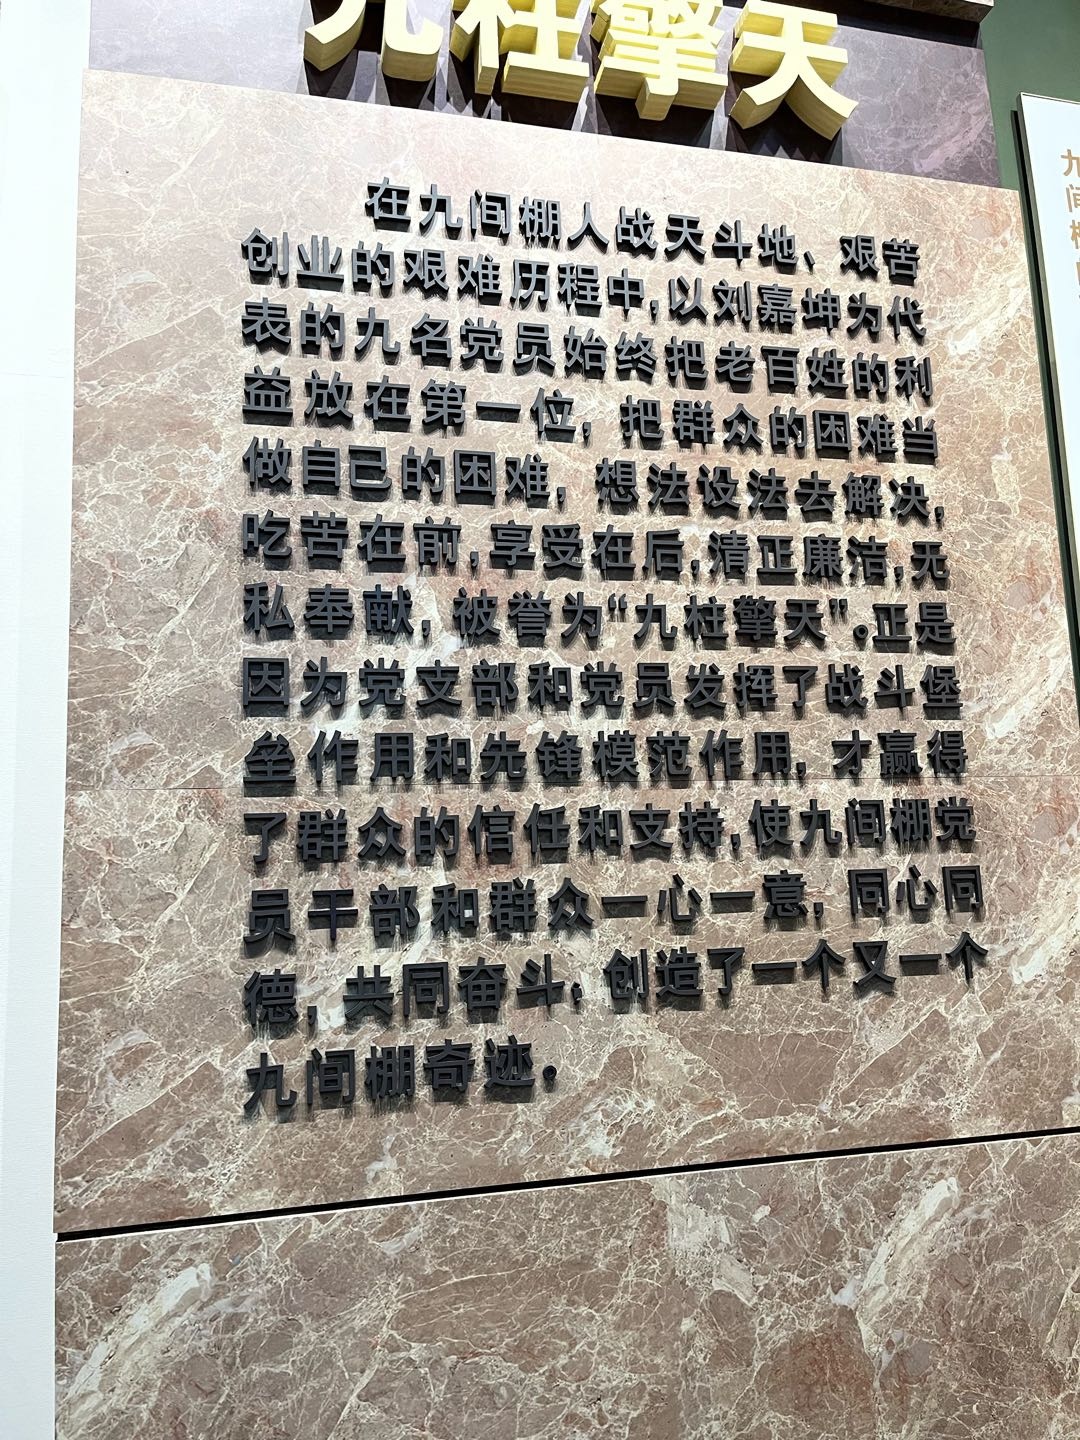 九柱擎天
在九间棚人战天斗地、艰苦
创业的艰难历程中,以刘嘉坤为代
表的九名党员始终把老百姓的利
益放在第一位,把群众的困难当
做自己的困难,想法设法去解决,
吃苦在前,享受在后,清正廉洁,无
私奉献,被誉为“九柱擎天”。正是
因为党支部和党员发挥了战斗堡
垒作用和先锋模范作用,才赢得
了群众的信任和支持,使九间棚党
员干部和群众一心一意,同心同
德,共同奋斗,创造了一个又一个
九间棚奇迹。
九间